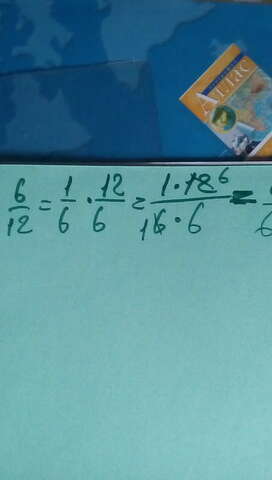 Атлас
6/12 = 1/6 · 12/6 = 1 · 12 6 / 1 6 · 6 =